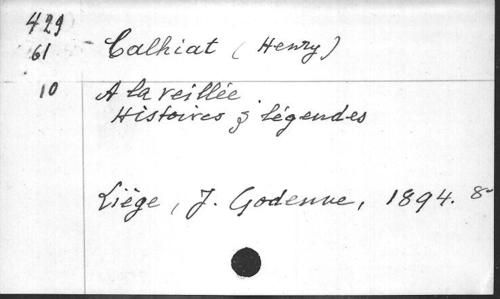 429
61 - Calhiat (Henry)
10 A la veillée.
Histoires & légendes
Liège, J. Godenne, 1894. 8°